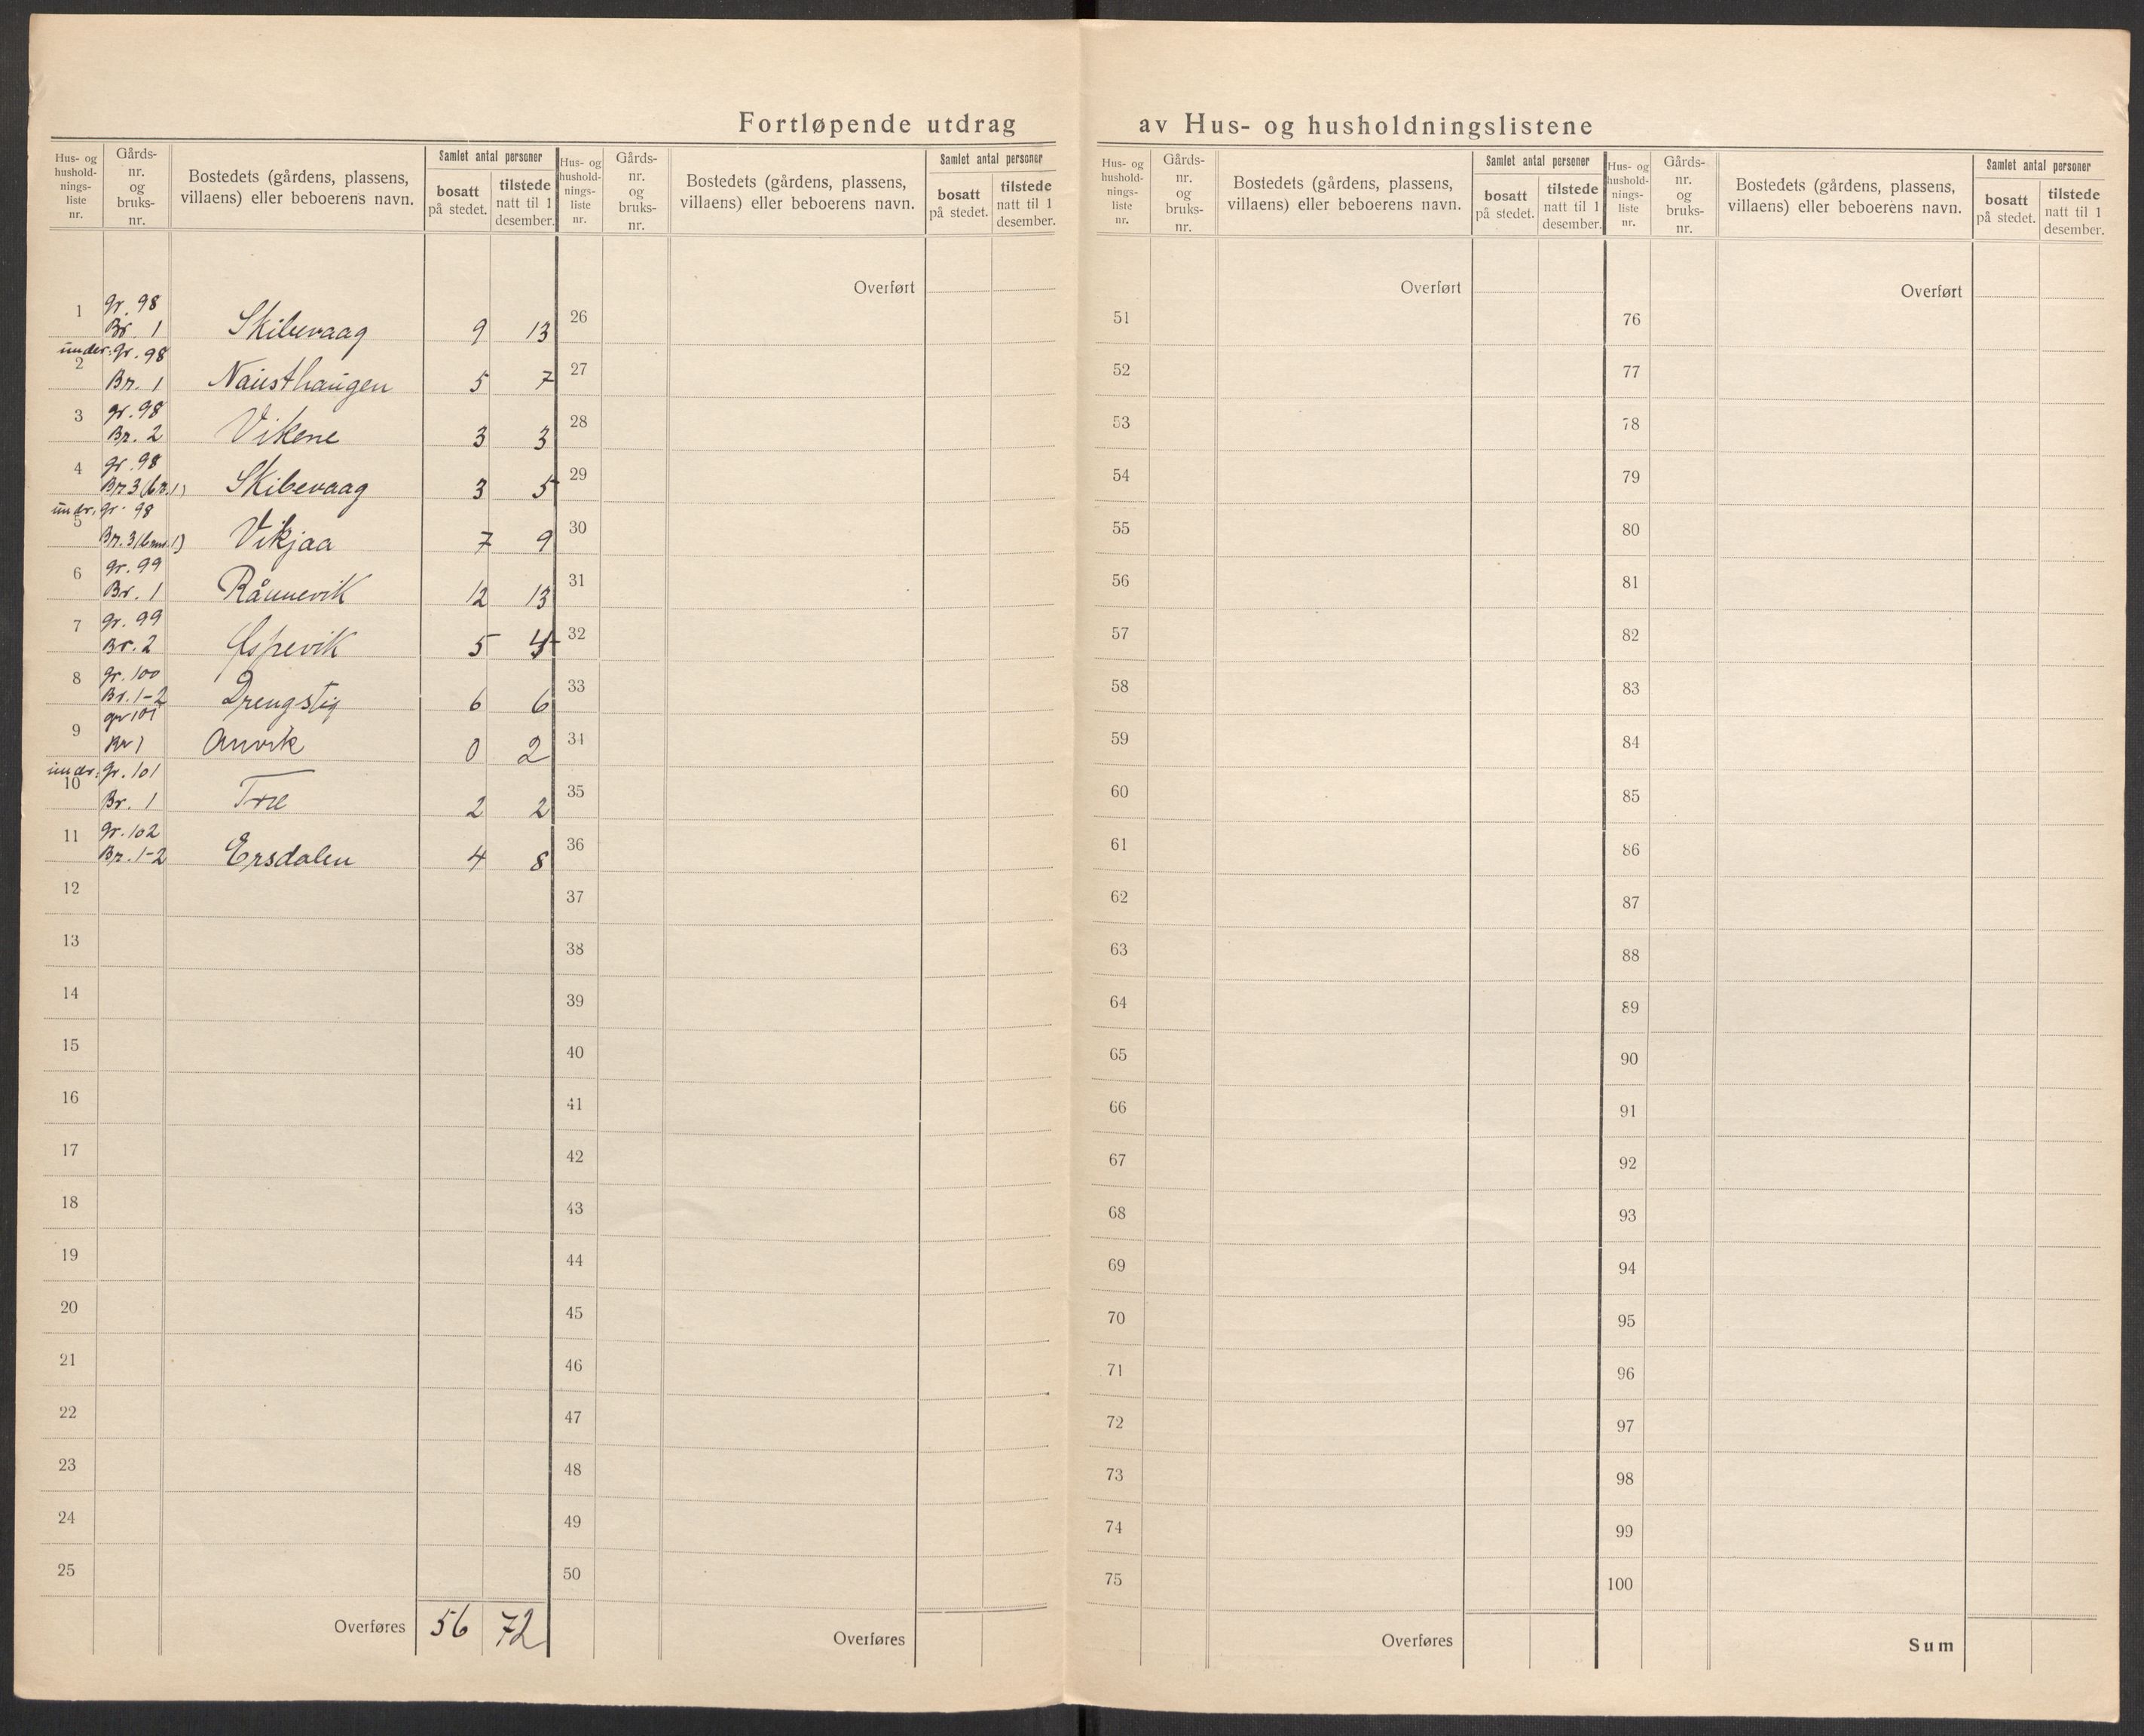 Fortløpende utdrag av Hus- og husholdningslistene
Hus- og
hushold-
nings-
liste
nr.
Gårds-
nr.
og
bruks-
nr.
Bostedets (gårdens, plassens,
villaens) eller beboerens navn.
Samlet antal personer
bosatt
på stedet.
tilstede
natt til 1
desember.
1 gr. 98
Br. 1 Skibevaag 9 13
under: gr. 98
2 Br. 1 Nausthaugen 5 7
3 gr. 98
Br. 2 Vikene 3 3
4 gr. 98
Br 3 (br. 1) Skibevaag 3 5
undr. gr. 98
5 Br. 3 (brn. 1) Vikjaa 7 9
6 gr. 99
Br. 1 Rånnevik 12 13
7 gr. 99
Br. 2 Espevik 5 4
8 gr. 100
Br. 1-2 Drengstig 6 6
9 gr 101
Br 1 Anvik 0 2
undr: gr. 101
10 Br. 1 Træ 2 2
11 gr. 102
Br. 1-2 Ersdalen 4 8
12
13
14
15
16
17
18
19
20
21
22
23
24
25
Overføres 56 72
Hus- og
hushold-
nings-
liste
nr.
Gårds-
nr.
og
bruks-
nr.
Bostedets (gårdens, plassens,
villaens) eller beboerens navn.
Samlet antal personer
bosatt
på stedet.
tilstede
natt til 1
desember.
Overført
26
27
28
29
30
31
32
33
34
35
36
37
38
39
40
41
42
43
44
45
46
47
48
49
50
Overføres
Hus- og
hushold-
nings-
liste
nr.
Gårds-
nr.
og
bruks-
nr.
Bostedets (gårdens, plassens,
villaens) eller beboerens navn.
Samlet antal personer
bosatt
på stedet.
tilstede
natt til 1
desember.
Overført
51
52
53
54
55
56
57
58
59
60
61
62
63
64
65
66
67
68
69
70
71
72
73
74
75
Overføres
Hus- og
hushold-
nings-
liste
nr.
Gårds-
nr.
og
bruks-
nr.
Bostedets (gårdens, plassens,
villaens) eller beboerens navn.
Samlet antal personer
bosatt
på stedet.
tilstede
natt til 1
desember.
Overført
76
77
78
79
80
81
82
83
84
85
86
87
88
89
90
91
92
93
94
95
96
97
98
99
100
Sum